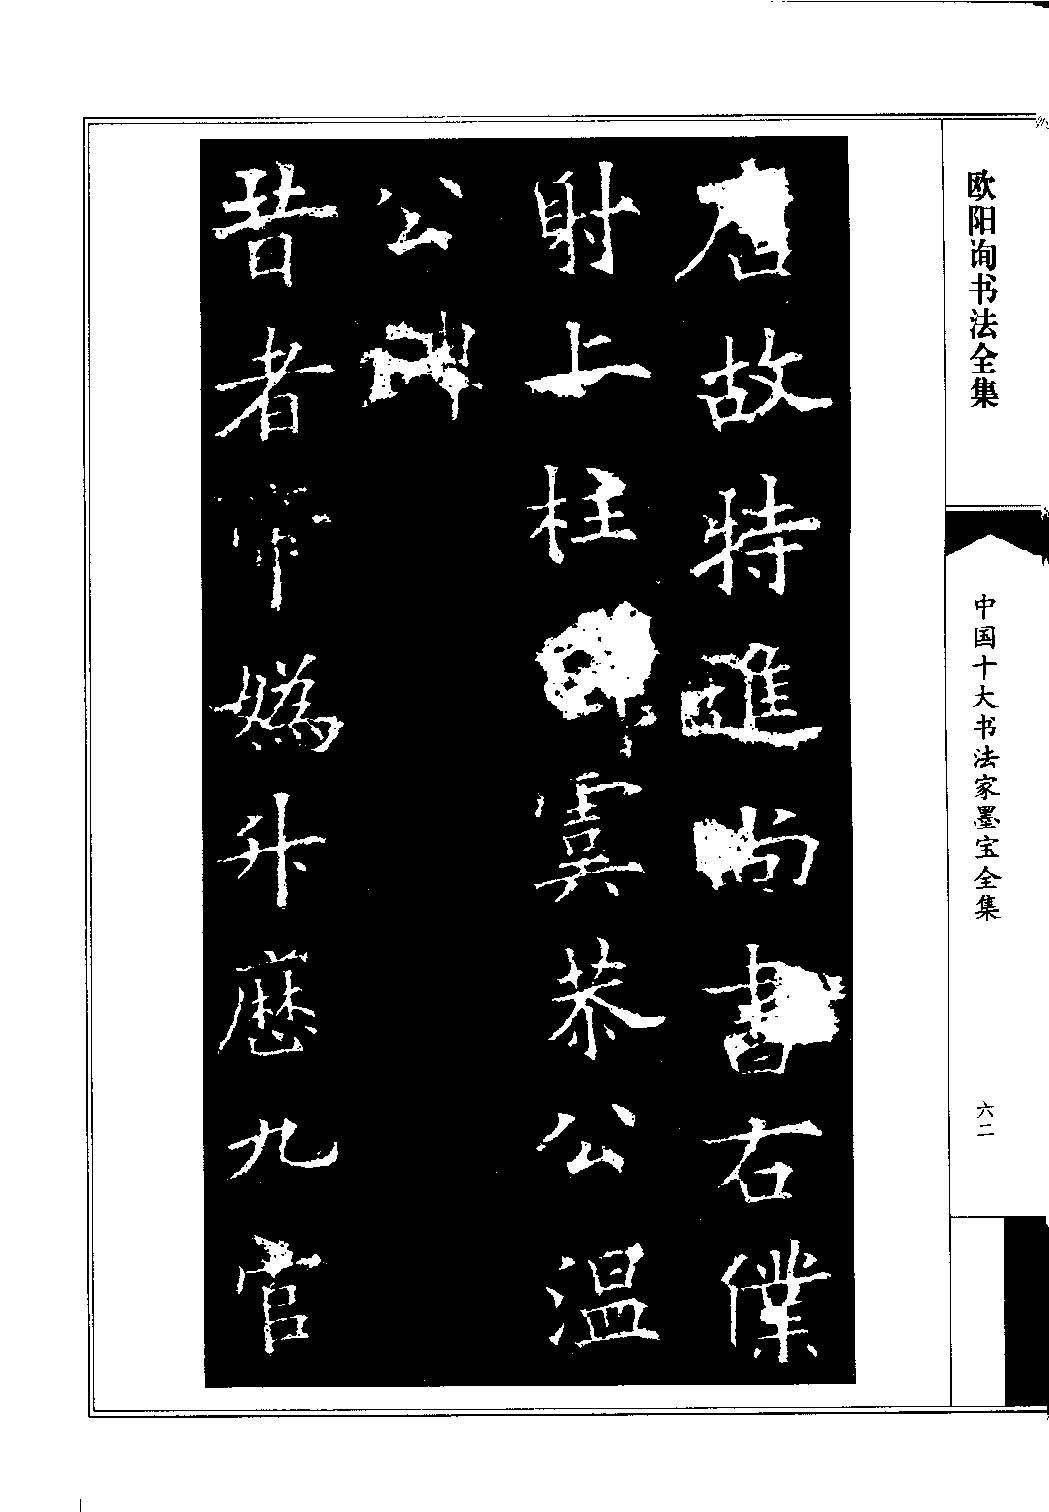 欧阳询书法全集
中国十大书法家墨宝全集
六二
唐故特進尚書右僕
射上柱國虞恭公温
公碑
昔者帝媯升歷九官